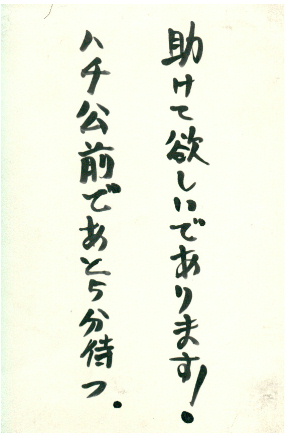 助けて欲しいであります!
ハチ公前であと5分待つ.